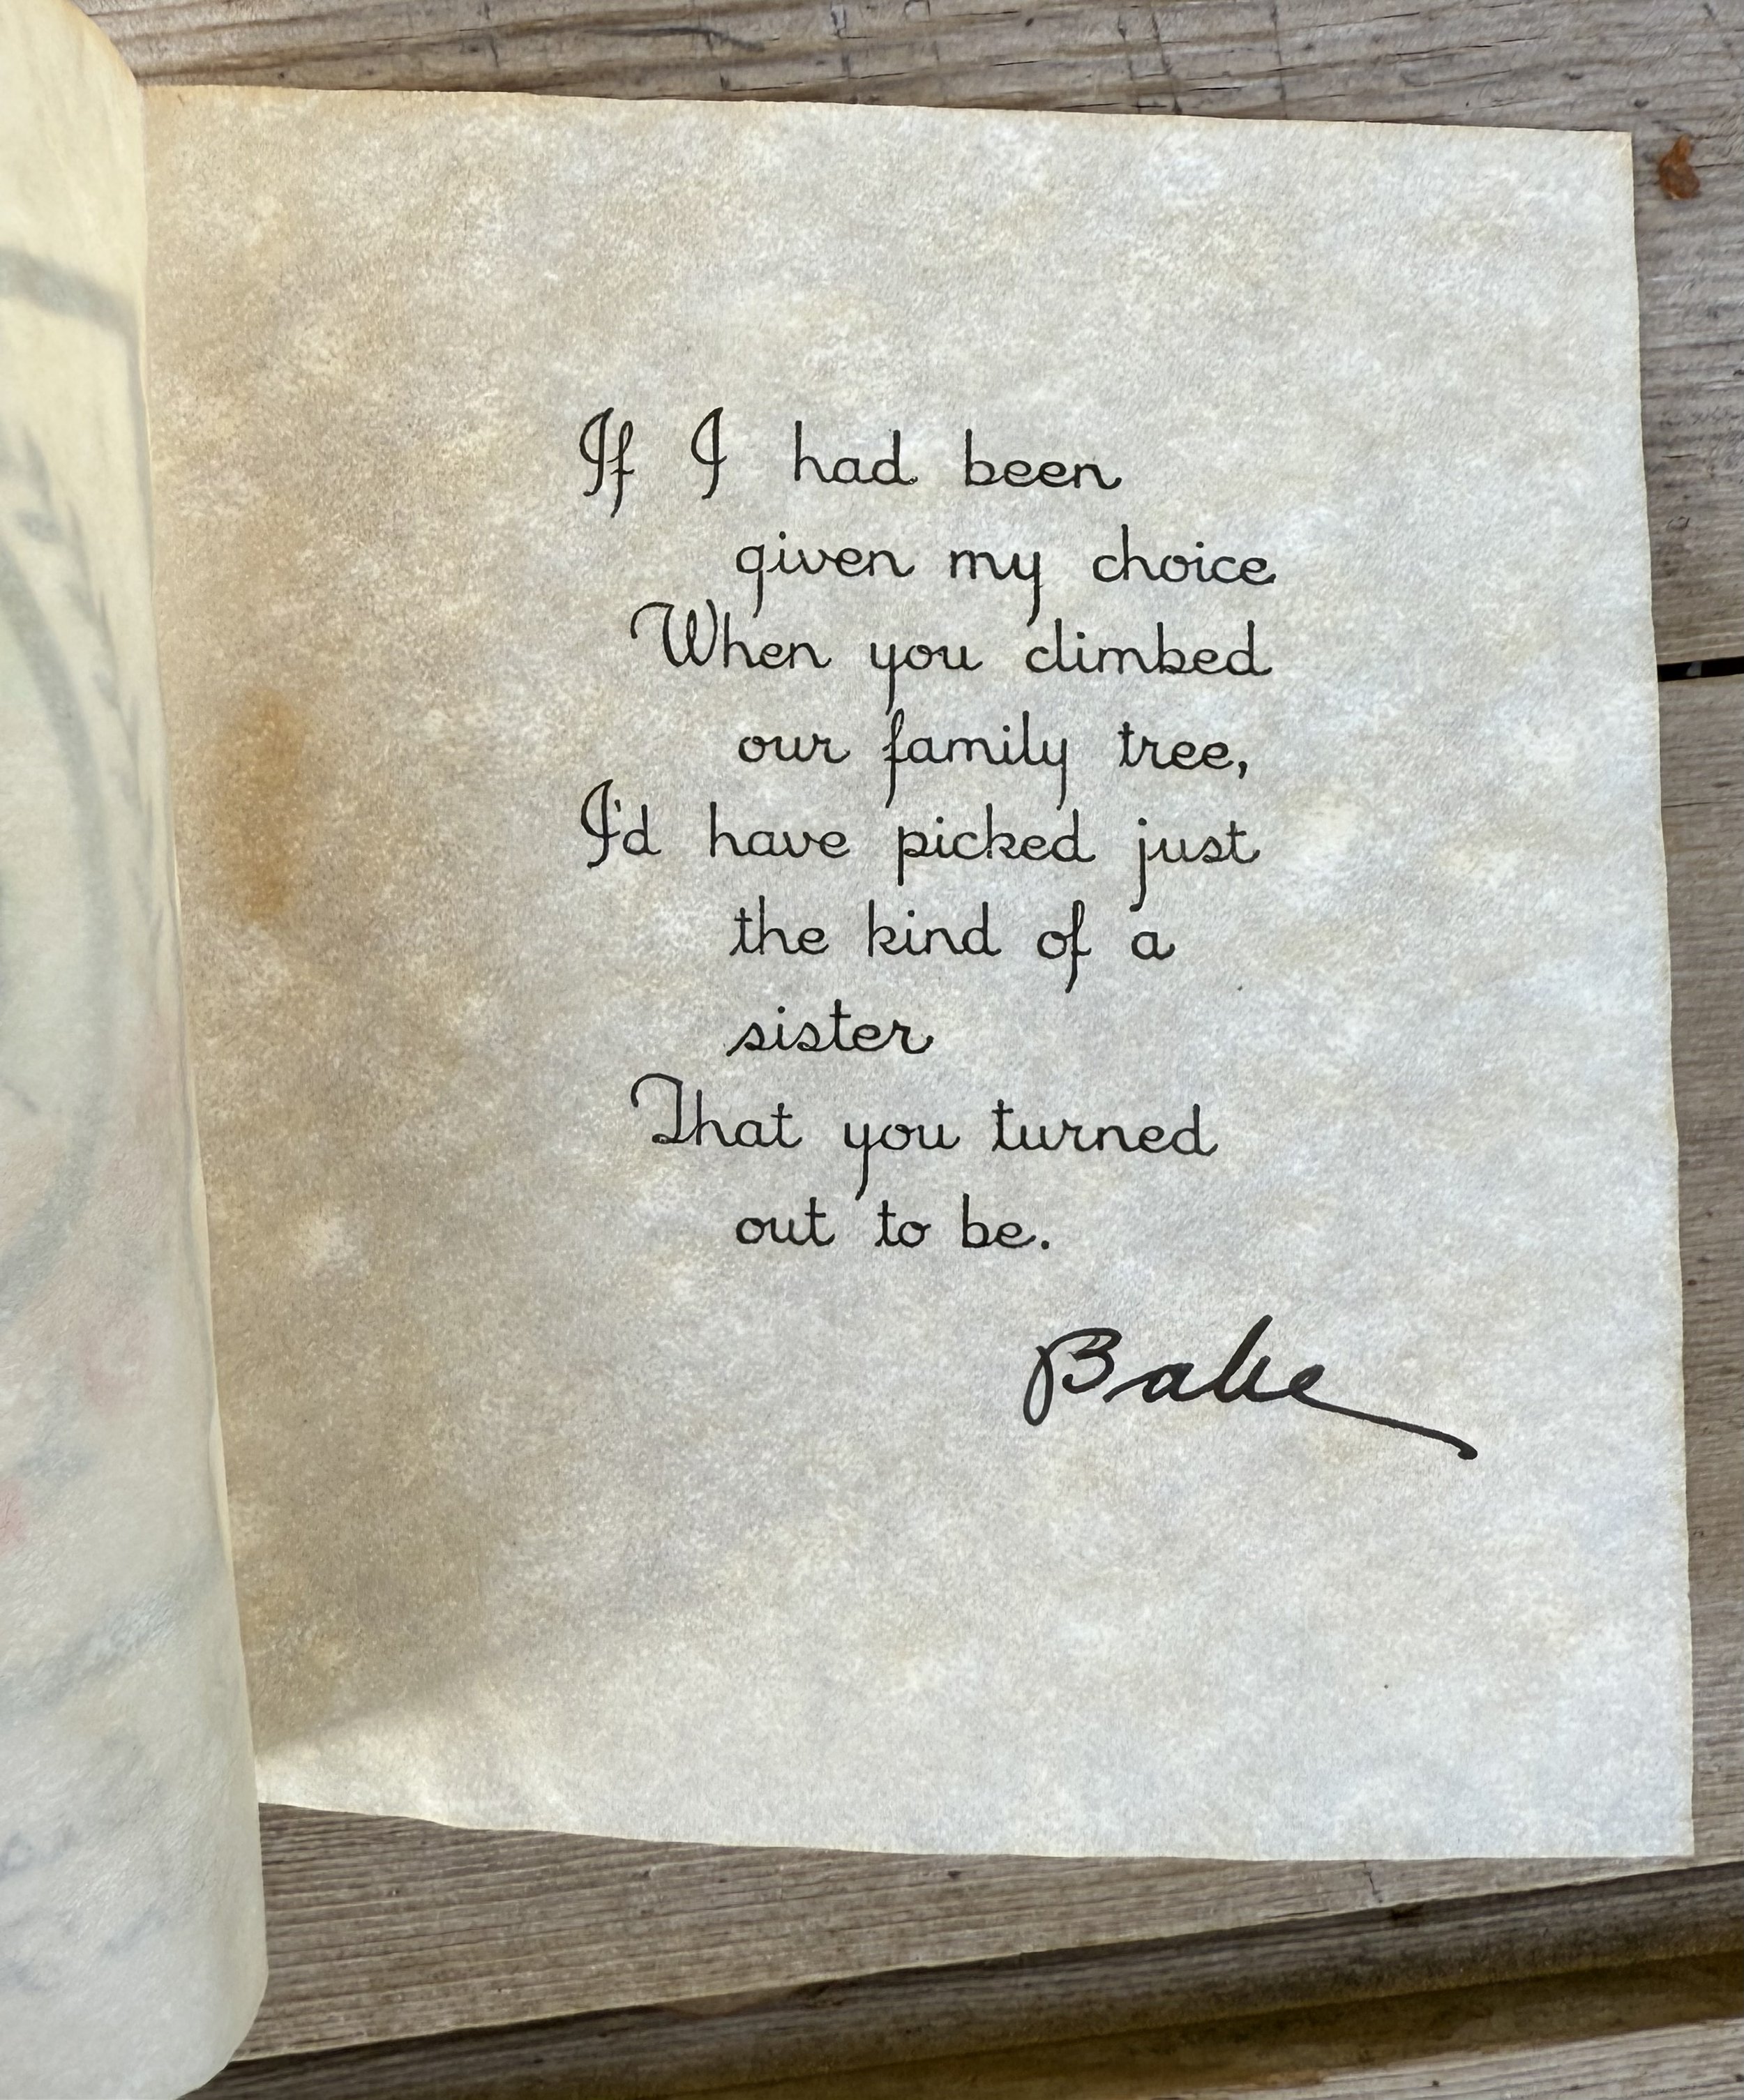 If I had been
given my choice
When you climbed
our family tree,
I'd have picked just
the kind of a
sister
That you turned
out to be.
Babe